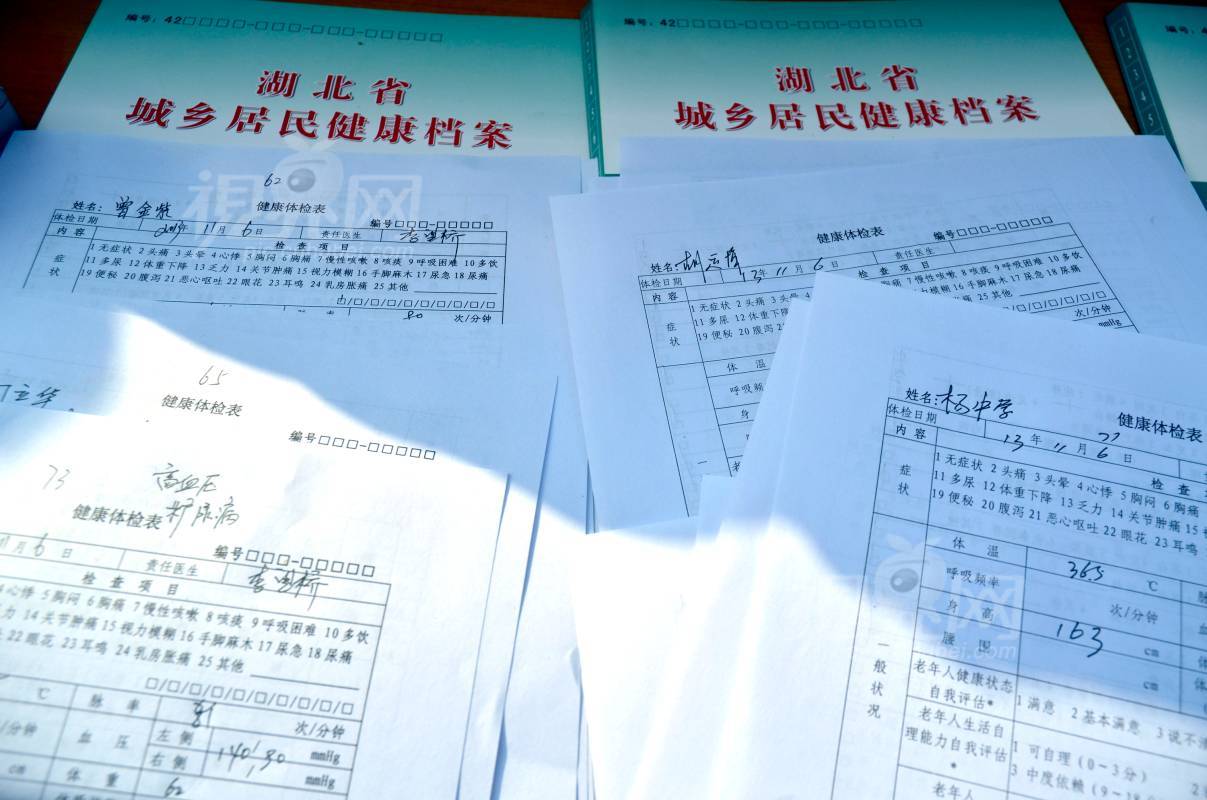 编号：42□□□□-□□□-□□□-□□□□□
湖北省
城乡居民健康档案
编号：42□□□□-□□□-□□□-□□□□□
湖北省
城乡居民健康档案
1
2
3
4
5
62
视界网
健康体检表
姓名：曾金
编号□□□-□□□□□
体检日期
2013年11月6日
责任医生
内容
检查项目
症状
1无症状 2头痛 3头晕 4心悸 5胸闷 6胸痛 7慢性咳嗽 8咳痰 9呼吸困难 10多饮
11多尿 12体重下降 13乏力 14关节肿痛 15视力模糊 16手脚麻木 17尿急 18尿痛
19便秘 20腹泻 21恶心呕吐 22眼花 23耳鸣 24乳房胀痛 25其他
□/□/□/□/□/□/□/□/□
80 次/分钟
65
立华
健康体检表
编号□□□-□□□□□
73
高血压
糖尿病
健康体检表
编号□□□-□□□□□
11月6日
责任医生
检查项目
心悸 5胸闷 6胸痛 7慢性咳嗽 8咳痰 9呼吸困难 10多饮
乏力 14关节肿痛 15视力模糊 16手脚麻木 17尿急 18尿痛
22眼花 23耳鸣 24乳房胀痛 25其他
□/□/□/□/□/□/□/□/□
℃
脉率
次/分钟
/分钟
血压
左侧
mmHg
右侧
140/80
mmHg
cm
体重
62
健康体检表
编号□□□-□□□□□
姓名：胡
体检日期
13年11月6日
责任医生
内容
检查项目
症状
1无症状 2头痛 3头晕 4心悸 5胸闷 6胸痛 7慢性咳嗽 8咳痰 9呼吸困难 10多饮
11多尿 12体重下降
19便秘 20腹泻
mmHg
体温
呼吸频
身
一
老
健康体检表
姓名：杨中学
77
体检日期
13年11月6日
内容
检查
症状
1无症状 2头痛 3头晕 4心悸 5胸闷 6胸痛
11多尿 12体重下降 13乏力 14关节肿痛 15
19便秘 20腹泻 21恶心呕吐 22眼花 23耳鸣
一般状况
体温
36.5 ℃
呼吸频率
次/分钟
身高
163 cm
腰围
cm
老年人健康状态
自我评估*
1满意 2基本满意 3说不
老年人生活自
理能力自我评估*
1可自理（0~3分）
3中度依赖（9~18
老年人